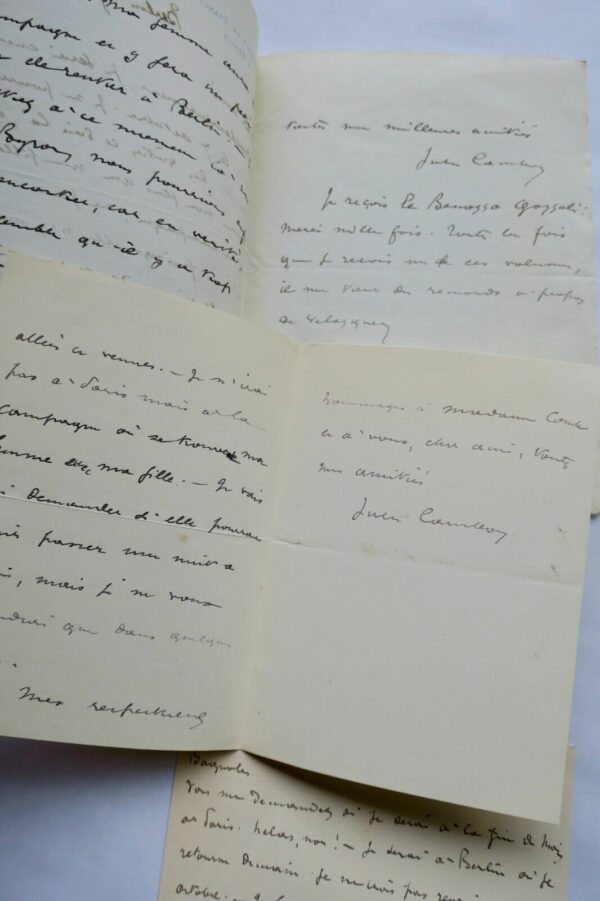 Berlin
ma femme
campagne et y fera un
de rentrer à Berlin
à ce moment là
nous pourrions
rencontrer, car en vérité,
semble qu'il y a trop
toutes mes meilleures amitiés
Jules Cambon
Je reçois le Benozzo Gozzoli:
merci mille fois. Toutes les fois
que je reçois un de ces volumes,
il me vient des remords à propos
de Velasquez
allées et venues. - Je n'irai
pas à Paris mais à la
campagne où se trouvent ma
femme avec ma fille. - Je vais
demander si elle pourrait
passer une nuit à
mais je ne vous
que dans quelques
Mes respectueux
hommages à Madame
et à vous, cher ami, toutes
mes amitiés
Jules Cambon
Bagnoles.
Vous me demandez si je serai à la fin de mois
à Paris. Hélas, non! - Je serai à Berlin où je
retourne demain. Je ne crois pas
octobre. -